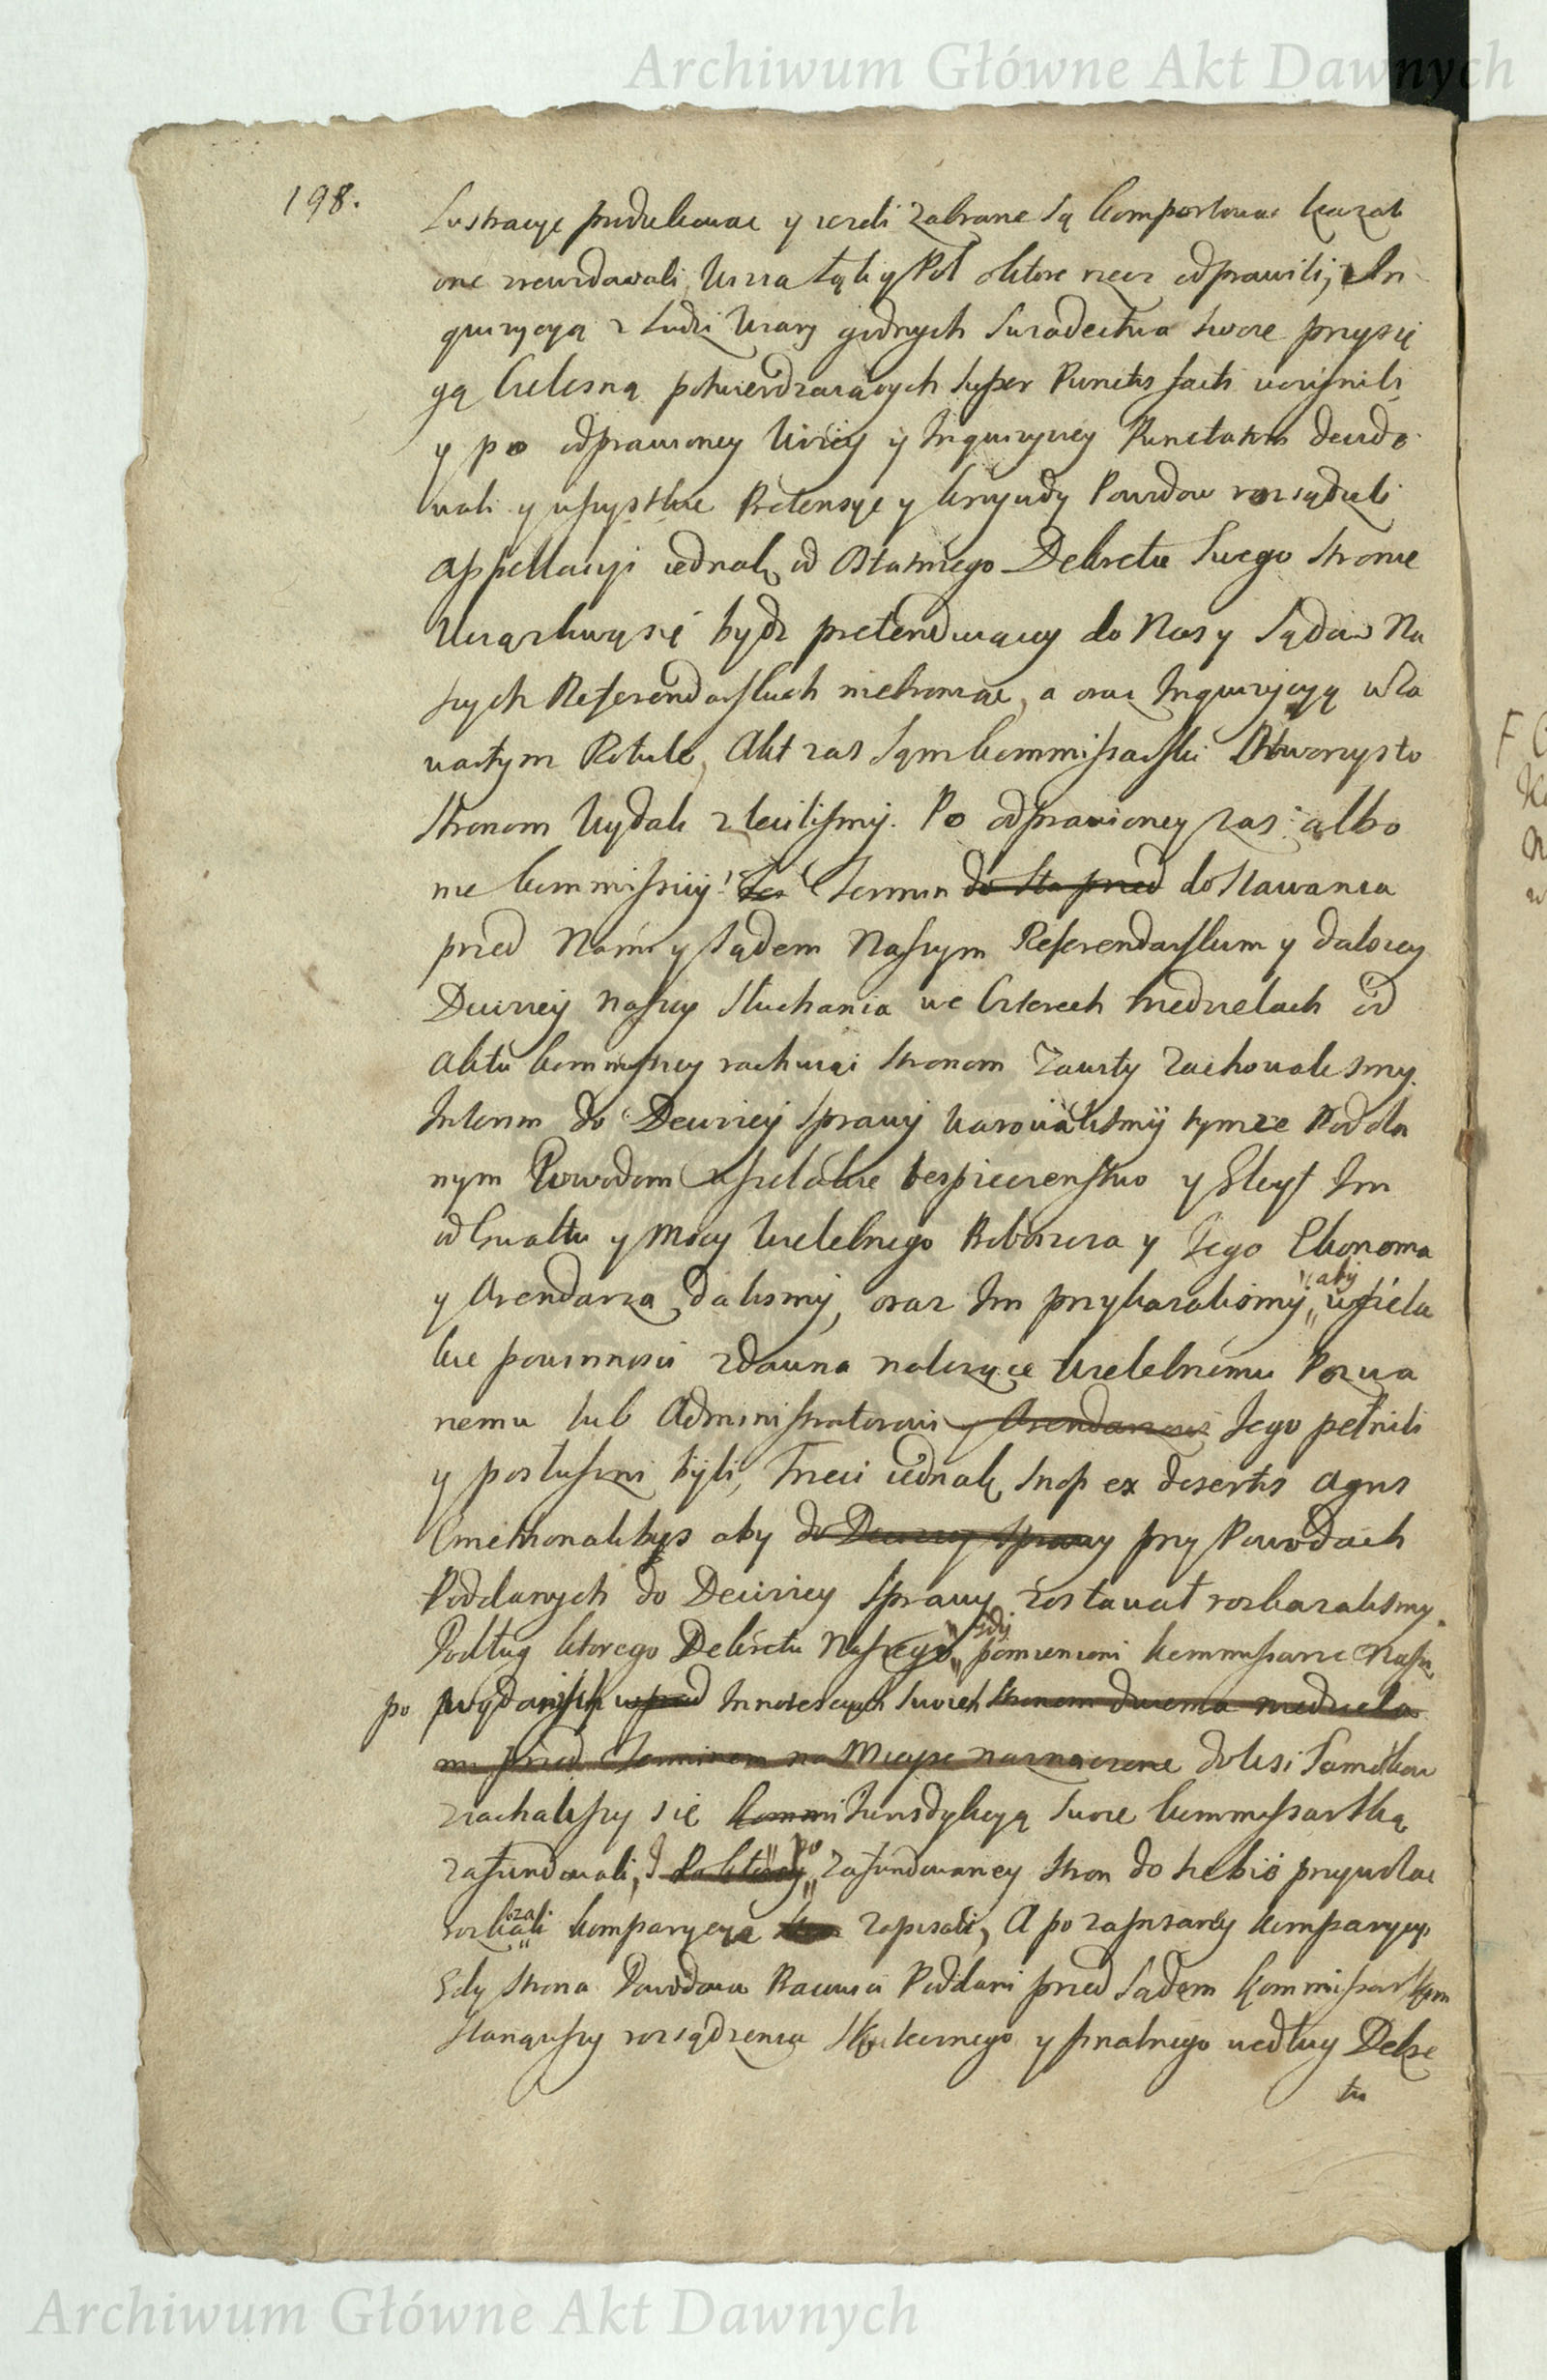 Archiwum Główne Akt Dawnych
198.
Lustracye produkować y ieżeli zabrane są komportować kazali
one zrewidowali, Wizią Łąk y Pól oktore rzecz odprawili, In
quizycyą z Ludzi Wiary godnych Swiadectwa swoie przysię
gą Cielesną potwierdzaiących super Punctis facti uczynili,
y po odprawioney Wizÿÿ ÿ Inquizycÿi Punctatim decido
wali y wszystkie Pretensye y krzywdy Powodow rozsądzili
appellacyi iednak od Ostatniego Dekretu Swego stronie
Uciążliwą się bydz pretenduiącey do Nas y Sądow Na
szych Referendarskich niebroniąc, a oraz Inquizycyą w Za
wartym Rotule, Akt zas Sąm kommissarski Otworzysto
stronom Wydali zleciliśmÿ. Po odprawioney zas albo
nie kommissÿi Termin do Sta przed do stawania
przed Nami y Sądem Naszym Referendarskim y dalszey
Decizÿi naszey słuchania we Czterech niedzielach od
aktu kommissyi rachuiąc stronom Zawity Zachowaliśmy.
Interim do Decizyi Sprawÿ warowaliśmÿ tymże Podda
nym Powodom wszelakie bespieczenstwo y Gleyt Im
od Gwałtu y Mocy Wielebnego Proboszcza y Iego Ekonoma
y Arendarza daliśmÿ, oraz Im przykazaliśmÿ " aby wszela
kie powinnosci zdawna należące Wielebnému Pozwa
nemu lub Administratorowi y Arendarzowi Iego pełnili
y posłuszni byli, Trzeci iednak Snop ex desertis agris
Cmethonalibus aby do Decizyi Sprawy przy Powodach
Poddanych do Decizyi Sprawy zostawał rozkazaliśmy.
Podług ktorego Dekretu Naszego " gdy pomienieni kommissarze Nasi
po wydanych wprzod Innotescencyach swoich stronom dwiema niedziela
mi przed Terminem na Mieysce naznaczone do Wsi Samotkow
ziachaliszy się kommi Iurisdykcyą swoie kommissarską
zafundowali, I Po ktorey " po zafundowaney stron do siebie przywołac
rozkazali komparycye zapisali, A po zapisaney komparycyi
Gdy strona Powodowa Pracowici Poddani przed Sądem kommissarskim
stanąwszy rozsądzenia skutecznego y finalnego według Dekre
tu
Archiwum Główne Akt Dawnych